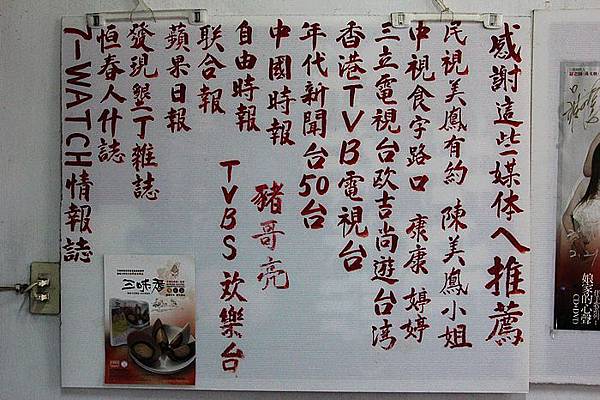 感謝這些媒体へ推薦
民視美鳳有約 陳美鳳小姐
中視食字路口 康康 婷婷
三立電視台欧吉尚遊台湾
香港TVB電視台
年代新聞台50台
中國時報 豬哥亮
自由時報 TVBS 欢樂台
联合報
蘋果日報
發現墾丁雜誌
恒春人什誌
7-WATCH情報誌
三味屋
娘家的心聲
CD+DVD